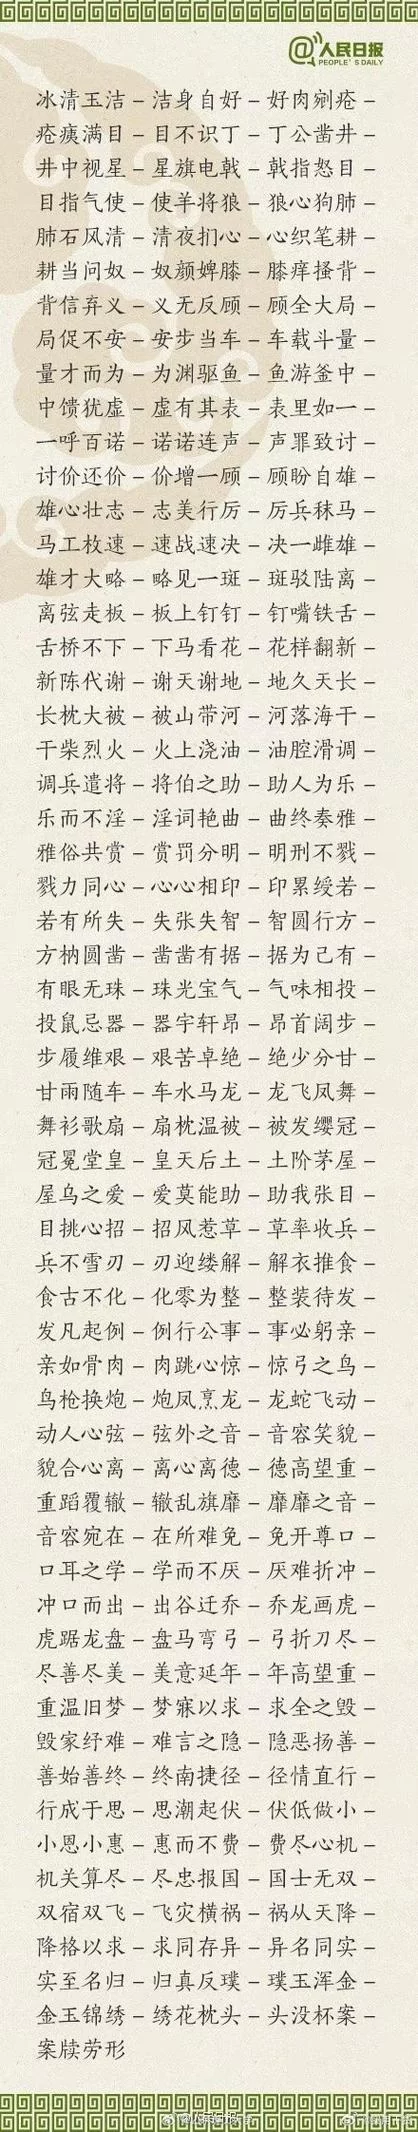 @人民日报
PEOPLE'S DAILY
冰清玉洁 – 洁身自好 – 好肉剜疮 –
疮痍满目 – 目不识丁 – 丁公凿井 –
井中视星 – 星旗电戟 – 戟指怒目 –
目指气使 – 使羊将狼 – 狼心狗肺 –
肺石风清 – 清夜扪心 – 心织笔耕 –
耕当问奴 – 奴颜婢膝 – 膝痒搔背 –
背信弃义 – 义无反顾 – 顾全大局 –
局促不安 – 安步当车 – 车载斗量 –
量才而为 – 为渊驱鱼 – 鱼游釜中 –
中馈犹虚 – 虚有其表 – 表里如一 –
一呼百诺 – 诺诺连声 – 声罪致讨 –
讨价还价 – 价增一顾 – 顾盼自雄 –
雄心壮志 – 志美行厉 – 厉兵秣马 –
马工枚速 – 速战速决 – 决一雌雄 –
雄才大略 – 略见一斑 – 斑驳陆离 –
离弦走板 – 板上钉钉 – 钉嘴铁舌 –
舌桥不下 – 下马看花 – 花样翻新 –
新陈代谢 – 谢天谢地 – 地久天长 –
长枕大被 – 被山带河 – 河落海干 –
干柴烈火 – 火上浇油 – 油腔滑调 –
调兵遣将 – 将伯之助 – 助人为乐 –
乐而不淫 – 淫词艳曲 – 曲终奏雅 –
雅俗共赏 – 赏罚分明 – 明刑不戮 –
戮力同心 – 心心相印 – 印累绶若 –
若有所失 – 失张失智 – 智圆行方 –
方枘圆凿 – 凿凿有据 – 据为己有 –
有眼无珠 – 珠光宝气 – 气味相投 –
投鼠忌器 – 器宇轩昂 – 昂首阔步 –
步履维艰 – 艰苦卓绝 – 绝少分甘 –
甘雨随车 – 车水马龙 – 龙飞凤舞 –
舞衫歌扇 – 扇枕温被 – 被发缨冠 –
冠冕堂皇 – 皇天后土 – 土阶茅屋 –
屋乌之爱 – 爱莫能助 – 助我张目 –
目挑心招 – 招风惹草 – 草率收兵 –
兵不雪刃 – 刃迎缕解 – 解衣推食 –
食古不化 – 化零为整 – 整装待发 –
发凡起例 – 例行公事 – 事必躬亲 –
亲如骨肉 – 肉跳心惊 – 惊弓之鸟 –
鸟枪换炮 – 炮凤烹龙 – 龙蛇飞动 –
动人心弦 – 弦外之音 – 音容笑貌 –
貌合心离 – 离心离德 – 德高望重 –
重蹈覆辙 – 辙乱旗靡 – 靡靡之音 –
音容宛在 – 在所难免 – 免开尊口 –
口耳之学 – 学而不厌 – 厌难折冲 –
冲口而出 – 出谷迁乔 – 乔龙画虎 –
虎踞龙盘 – 盘马弯弓 – 弓折刀尽 –
尽善尽美 – 美意延年 – 年高望重 –
重温旧梦 – 梦寐以求 – 求全之毁 –
毁家纾难 – 难言之隐 – 隐恶扬善 –
善始善终 – 终南捷径 – 径情直行 –
行成于思 – 思潮起伏 – 伏低做小 –
小恩小惠 – 惠而不费 – 费尽心机 –
机关算尽 – 尽忠报国 – 国士无双 –
双宿双飞 – 飞灾横祸 – 祸从天降 –
降格以求 – 求同存异 – 异名同实 –
实至名归 – 归真反璞 – 璞玉浑金 –
金玉锦绣 – 绣花枕头 – 头没杯案 –
案牍劳形